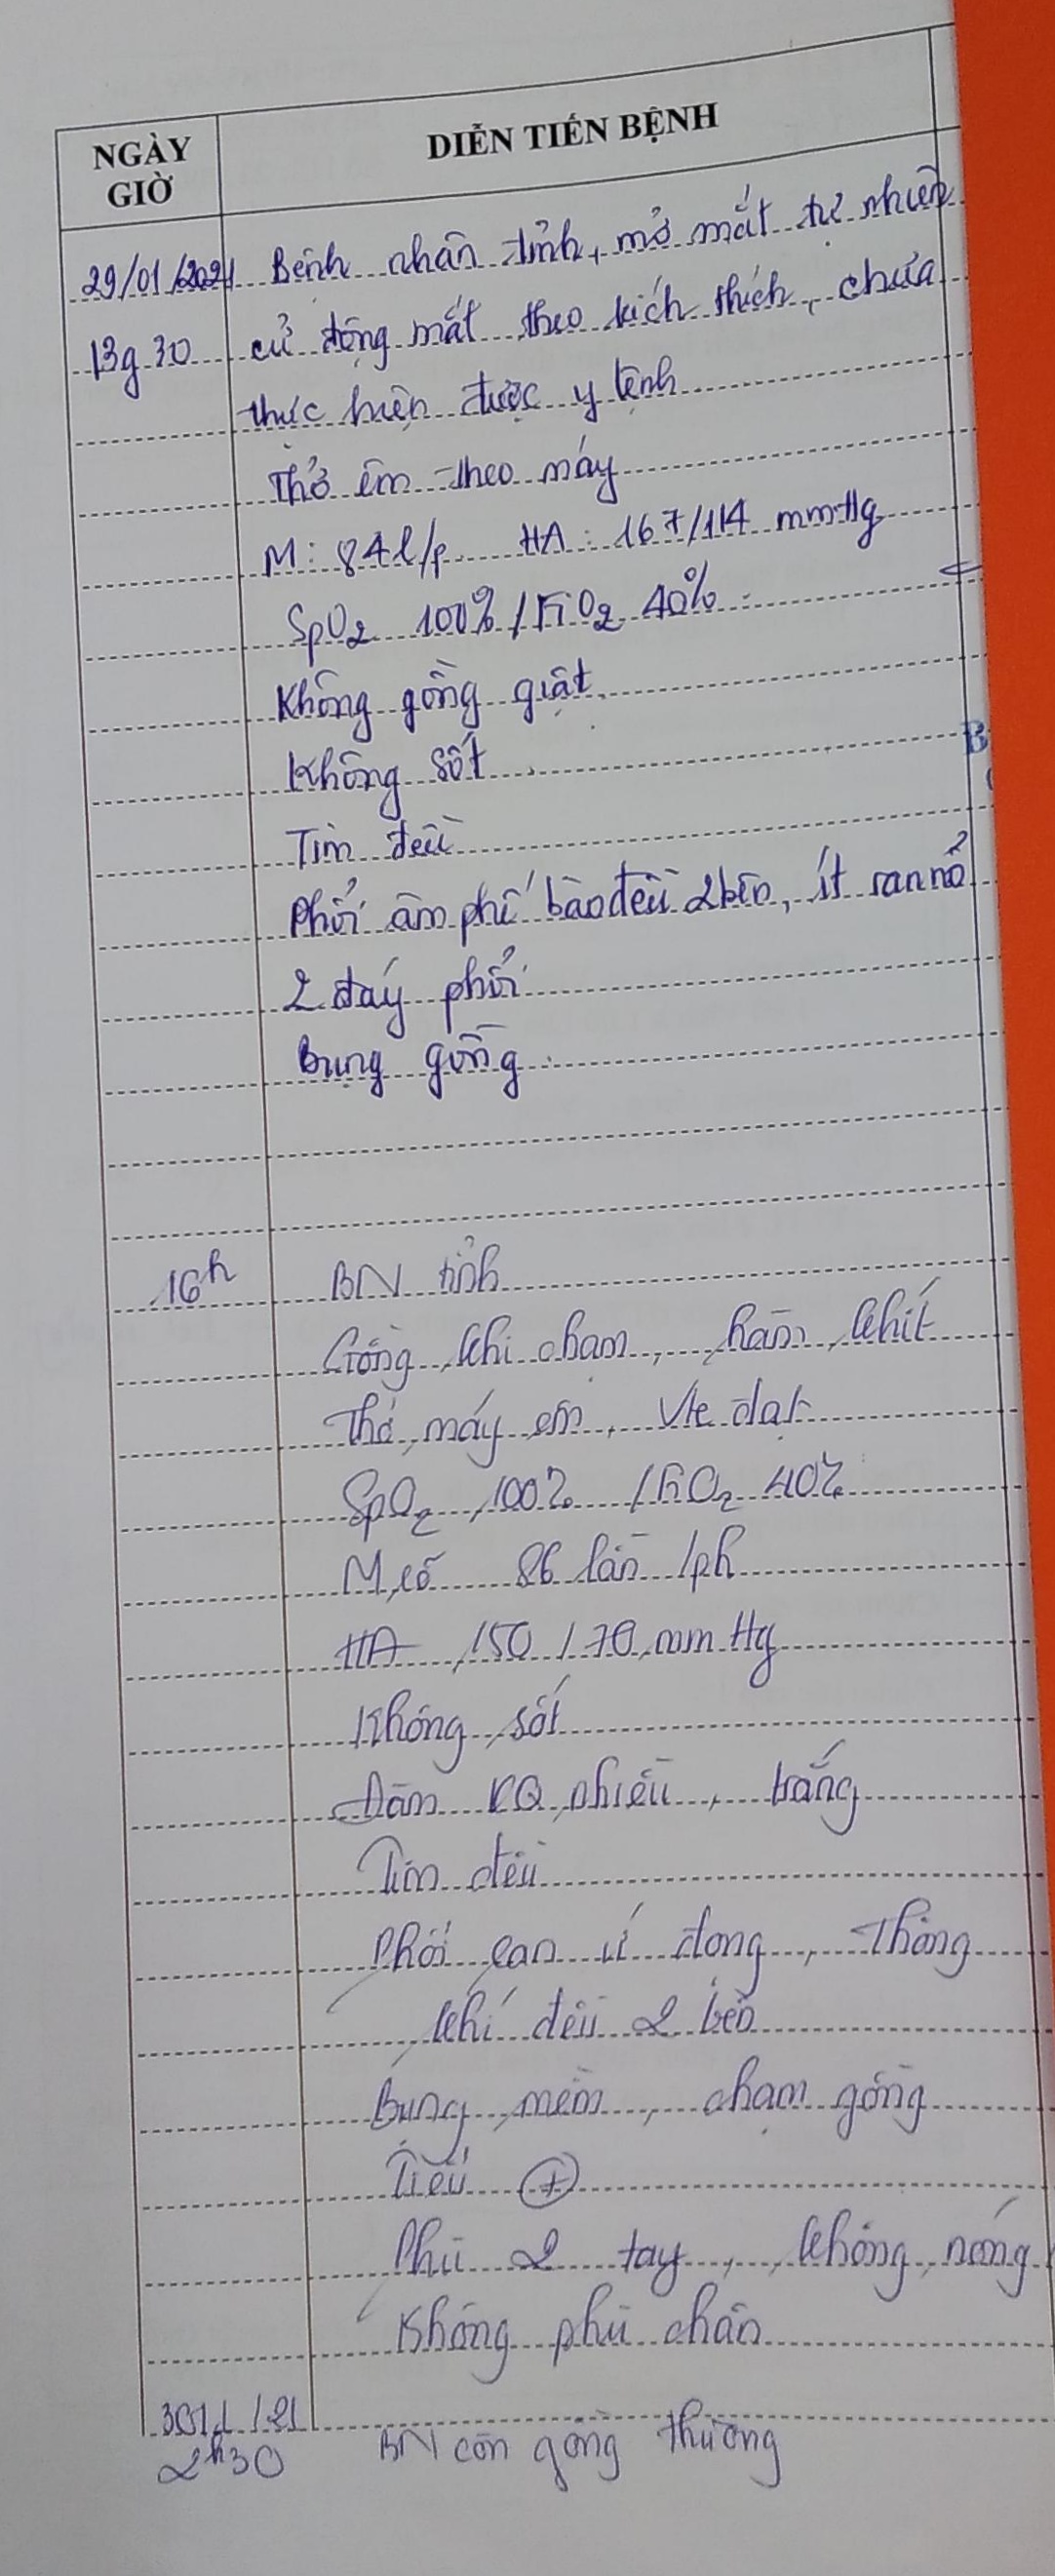 NGÀY GIỜ
DIỄN TIẾN BỆNH
29/01/2021 Bệnh nhân tỉnh, mở mắt tự nhiên
13g30 cử động mắt theo kích thích, chưa
thực hiện được y lệnh
Thở êm theo máy
M: 84 l/p HA: 167/114 mmHg
SpO2 100% / FiO2 40%
Không gồng giật
Không sốt
Tim đều
Phổi âm phế bào đều 2 bên, ít ran nổ
2 đáy phổi
Bụng gồng
16h BN tỉnh
Gồng khi chạm, hàm khít
Thở máy êm, Vte đạt
SpO2 100% / FiO2 40%
M, cổ 86 lần /ph
HA 150 / 70 mmHg
Không sốt
Đàm KQ nhiều, trắng
Tim đều
Phổi ran ứ đọng, Thông
khí đều 2 bên
Bụng mềm, chạm gồng
Tiểu (+)
Phù 2 tay, không nóng
Không phù chân
2h30 BN còn gồng thường